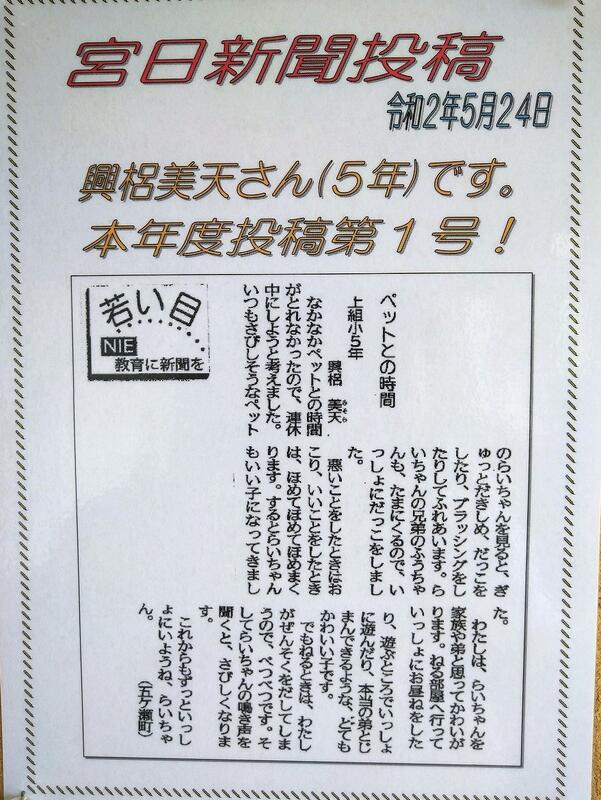 宮日新聞投稿
令和2年5月24日
興梠美天さん(5年)です。
本年度投稿第1号!
若い目
NIE
教育に新聞を
ペットとの時間
上組小5年
興梠 美天
みそら
なかなかペットとの時間
がとれなかったので、連休
中にしようと考えました。
いつもさびしそうなペット
のらいちゃんを見ると、ぎ
ゅっとだきしめ、だっこを
したり、ブラッシングをし
たりしてふれあいます。ら
いちゃんの兄弟のふうちゃ
んも、たまにくるので、い
っしょにだっこをしまし
た。
悪いことをしたときはお
こり、いいことをしたとき
は、ほめてほめてほめまく
ります。するとらいちゃん
もいい子になってきまし
た。
わたしは、らいちゃんを
家族や弟と思ってかわいが
ります。ねる部屋へ行って
いっしょにお昼ねをした
り、遊ぶところでいっしょ
に遊んだり、本当の弟とじ
まんできるような、とても
かわいい子です。
でもねるときは、わたし
がぜんそくをだしてしま
うので、べつべつです。そ
してらいちゃんの鳴き声を
聞くと、さびしくなりま
す。
これからもずっといっし
ょにいようね、らいちゃ
ん。
(五ケ瀬町)